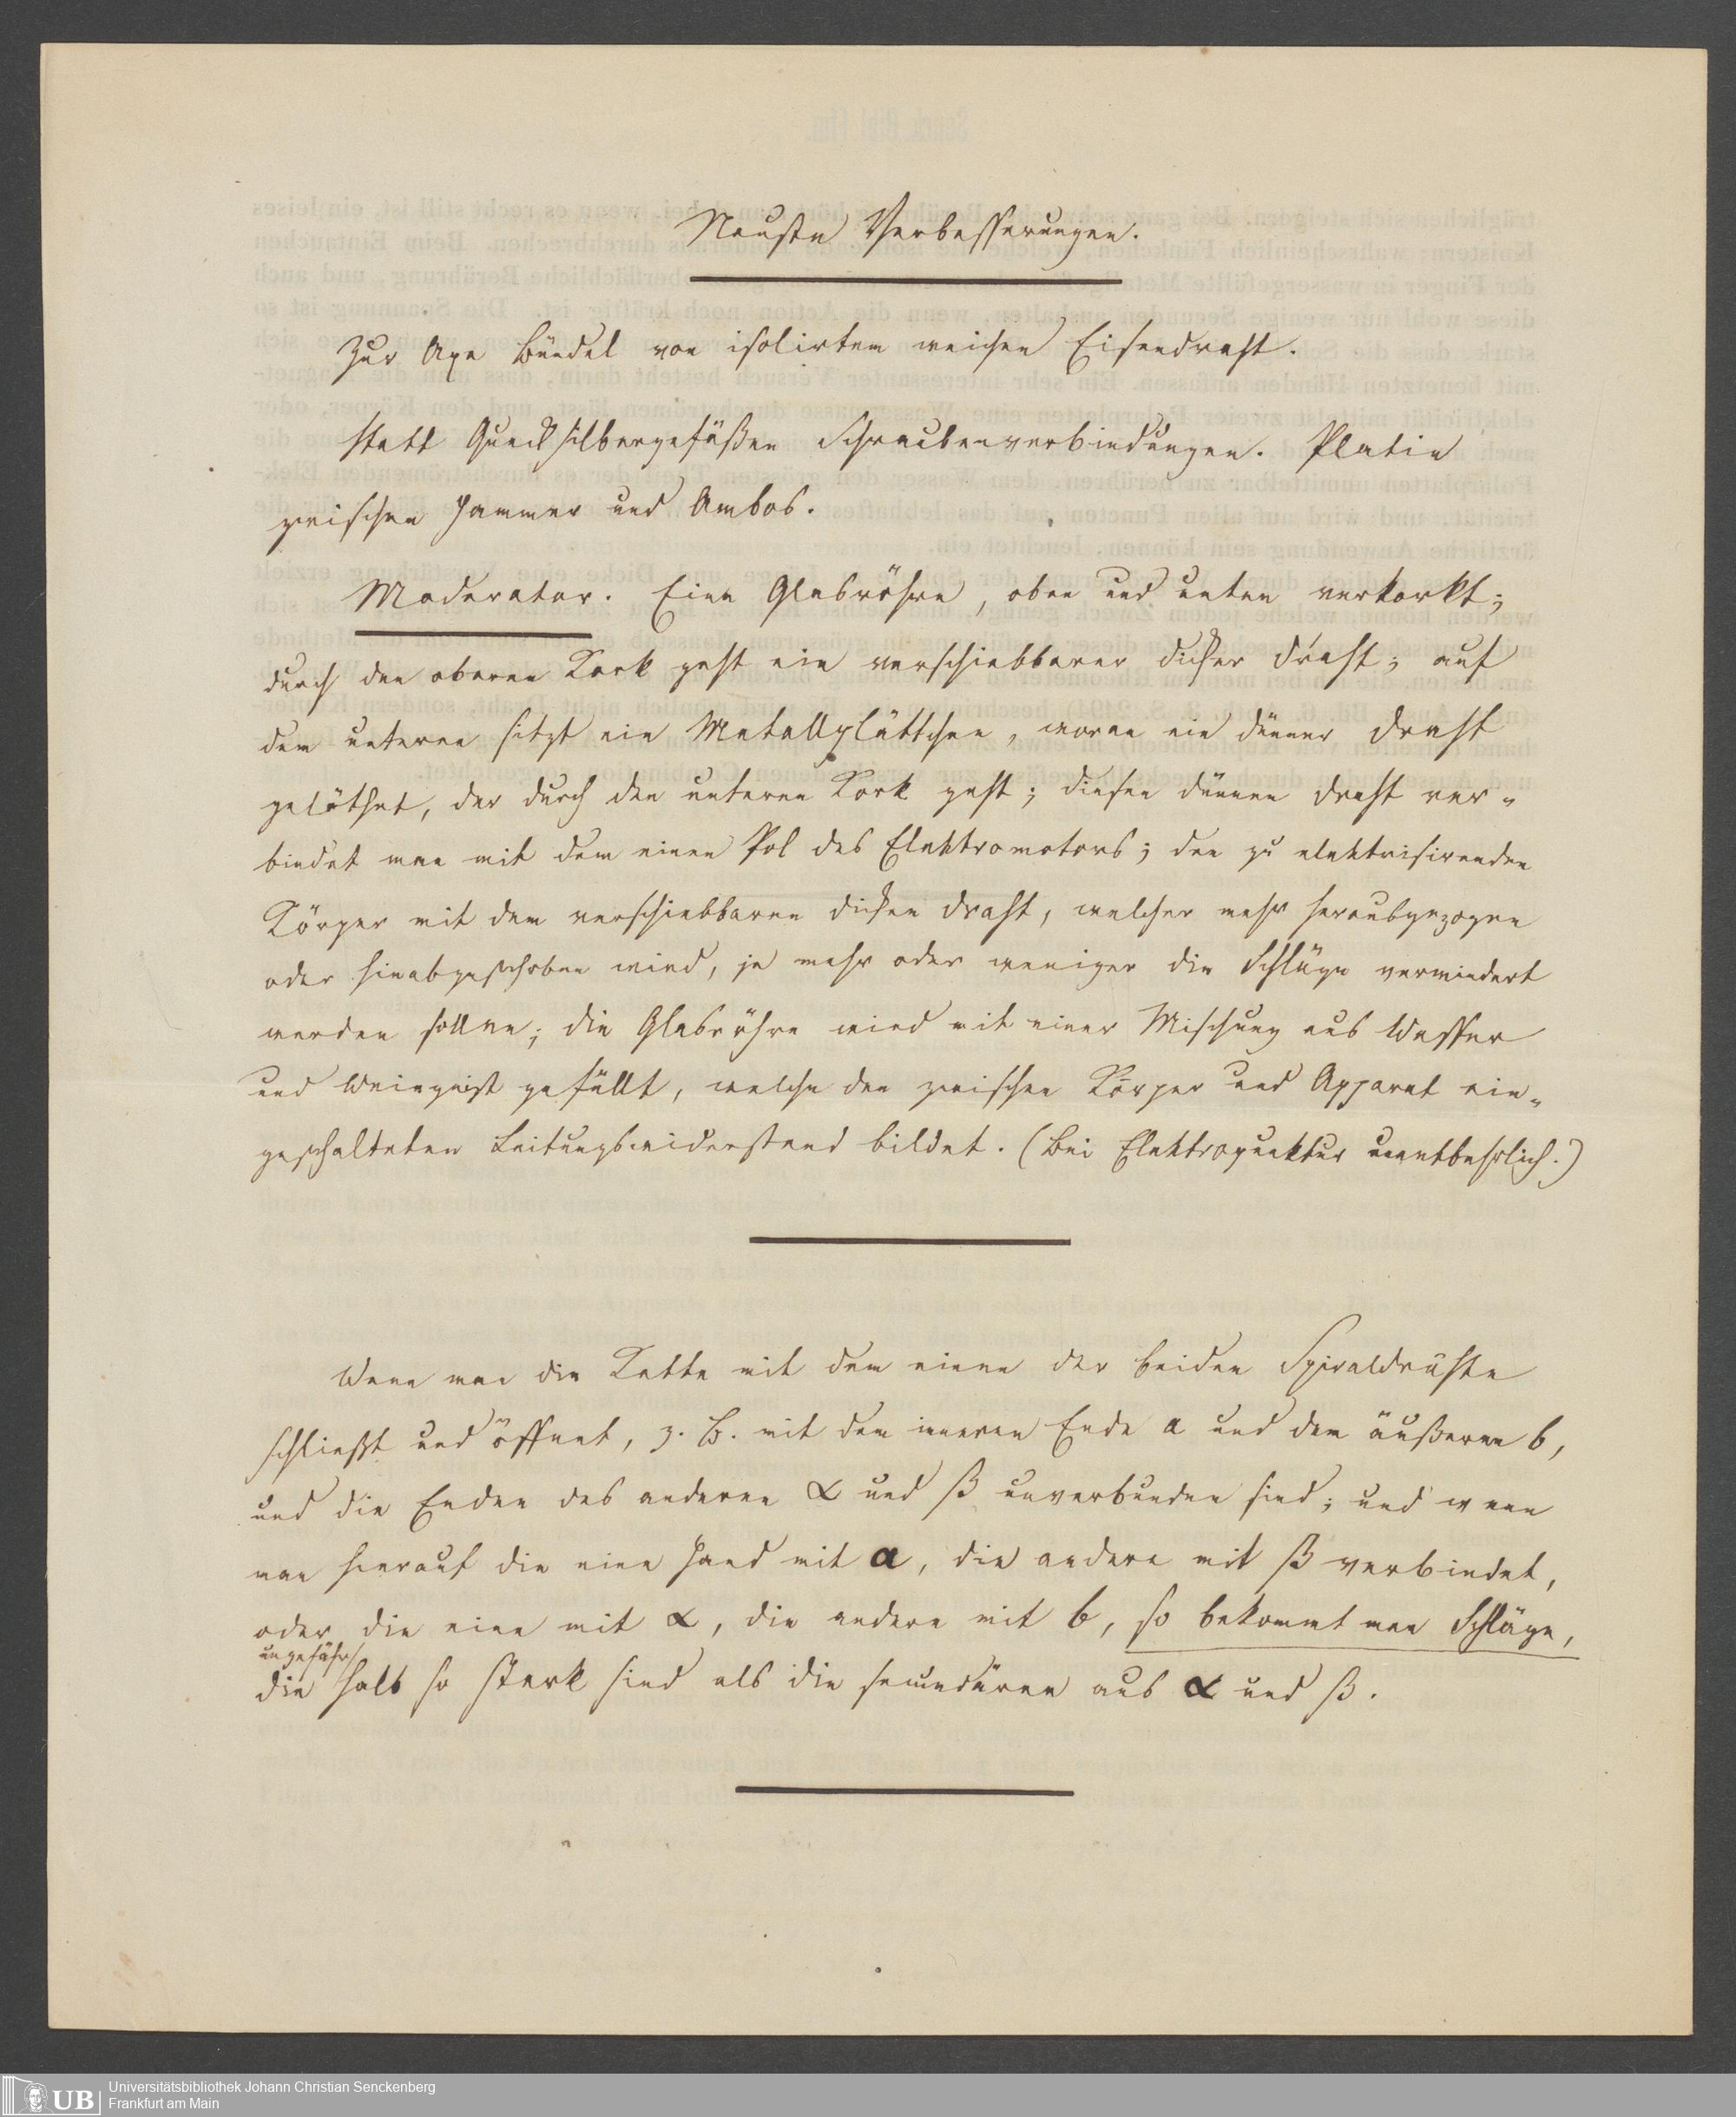 Neuste Verbesserungen.
Zur Axe Bündel von isolirtem weichen Eisendraht.
statt Quecksilbergefäßen Schraubenverbindungen. Platin
zwischen Hammer und Ambos.
Moderator. Eine Glasröhre, oben und unten verkorkt;
durch den oberen Kork geht ein verschiebbarer dicker Draht; auf
dem unteren sitzt ein Metallplättchen, woran ein dünner Draht
gelöthet, der durch den unteren Kork geht; diesen dünnen Draht ver-
bindet man mit dem einen Pol des Elektromotors; den zu elektrisirenden
Körper mit dem verschiebbaren dicken Draht, welcher mehr heraufgezogen
oder hinabgeschoben wird, je mehr oder weniger die Schläge vermindert
werden sollen; die Glasröhre wird mit einer Mischung aus Wasser
und Weingeist gefüllt, welche den zwischen Körper und Apparat ein-
geschalteten Leitungswiderstand bildet. (Bei Elektropunktur unentbehrlich.)
Wenn man die Kette mit dem einen der beiden Spiraldrähte
schließt und öffnet, z. B. mit dem inneren Ende a und dem äußeren b,
und die Enden des anderen α und β unverbunden sind; und wenn
man hierauf die eine Hand mit a, die andere mit β verbindet,
oder die eine mit α, die andere mit b, so bekommt man Schläge,
ungefähr
die halb so stark sind als die secundären aus α und β.
UB
Universitätsbibliothek Johann Christian Senckenberg
Frankfurt am Main